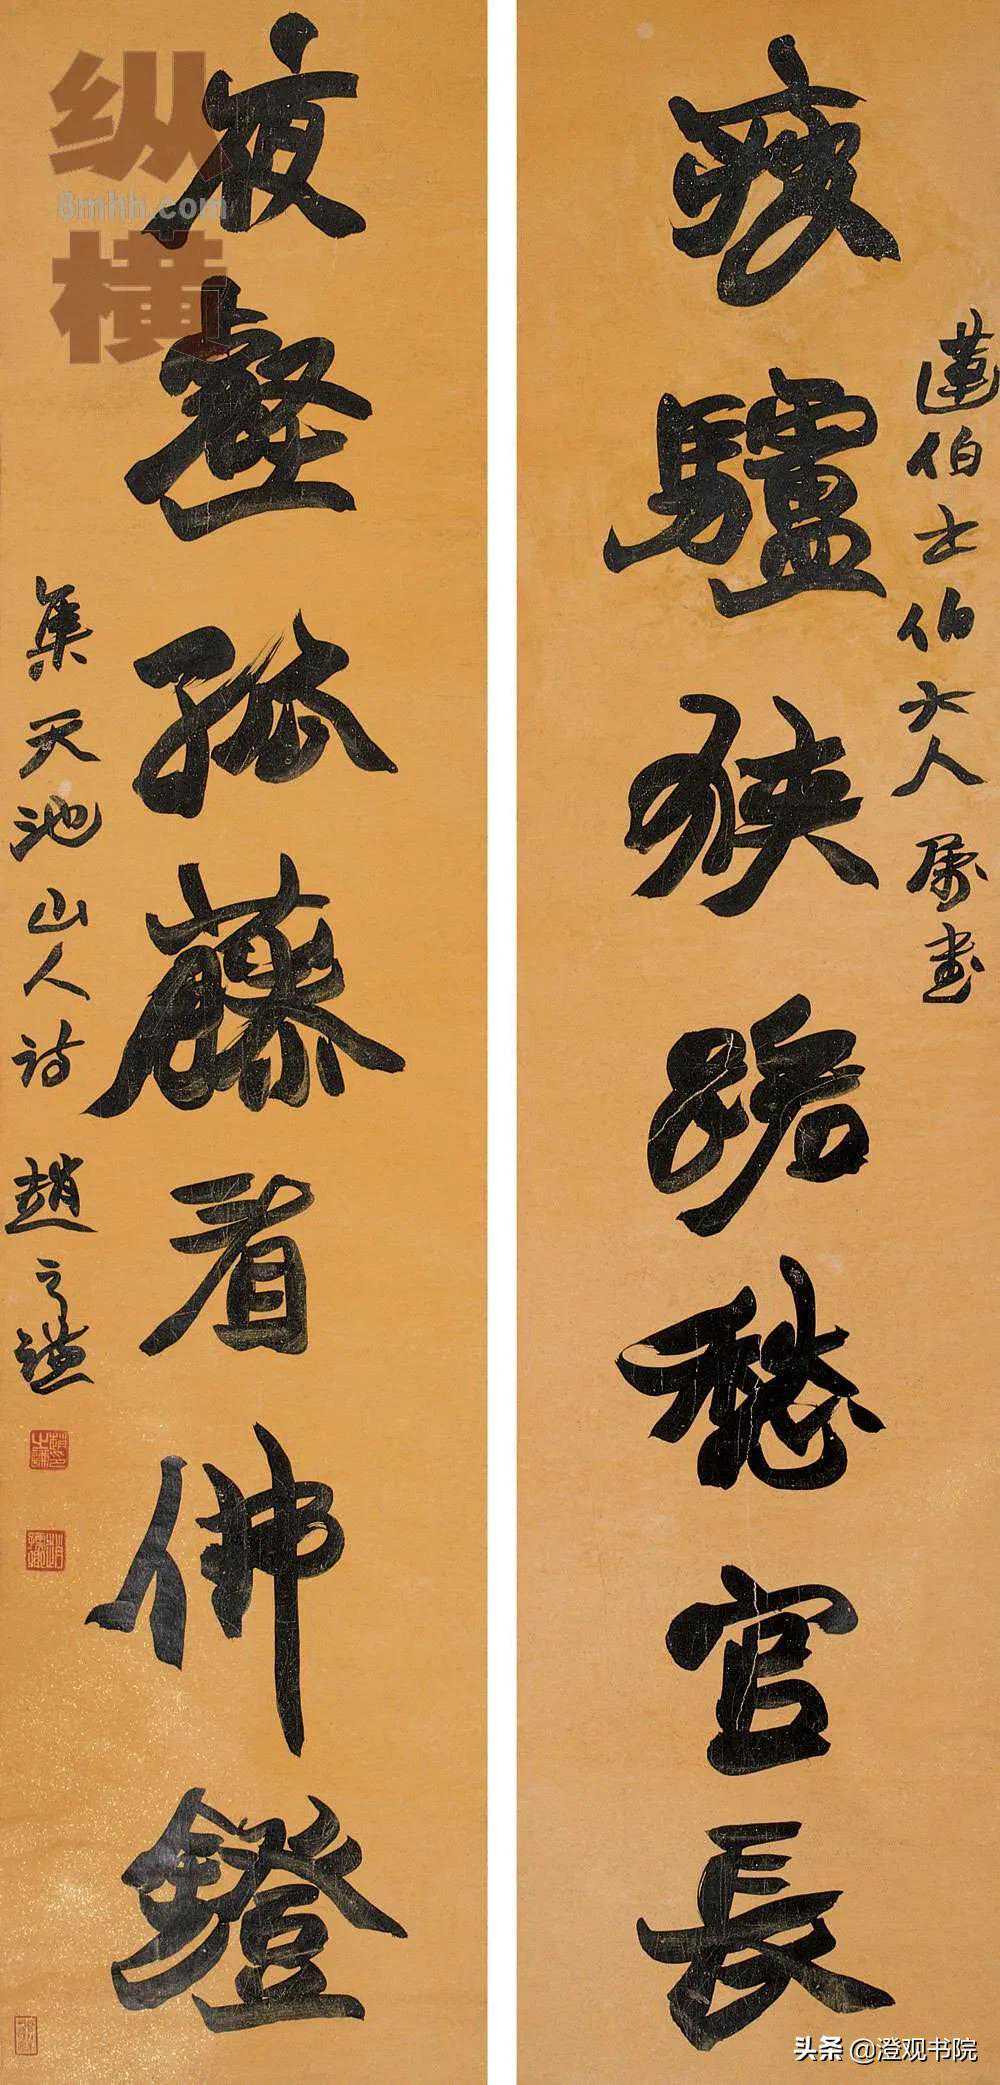 疲驢狹路愁官長
蓮伯士伯大人屬書
夜壑孤藤看佛鐙
集天池山人詩 趙之謙
纵
8mhh.com
横
头条 @澄观书院